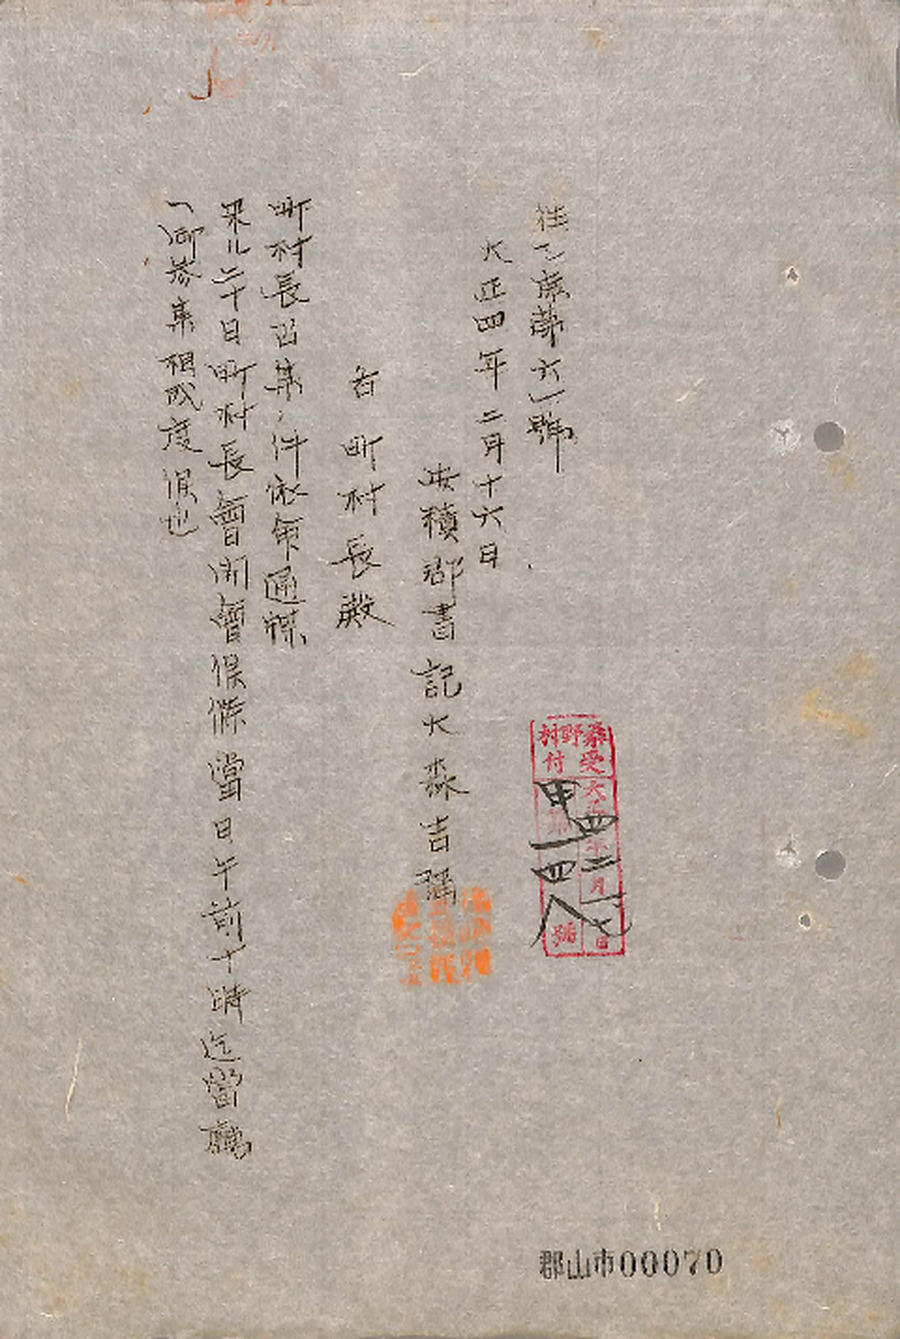 往乙庶第六一號
大正四年二月十六日
安積郡書記大森吉弥
各町村長殿
町村長召集ノ件依命通牒
来ル二十日町村長會開會候條當日午前十時迄當廳
ヘ御参集相成度候也
村野
受付
大正四年二月十七日
甲第一四八號
郡山市00070